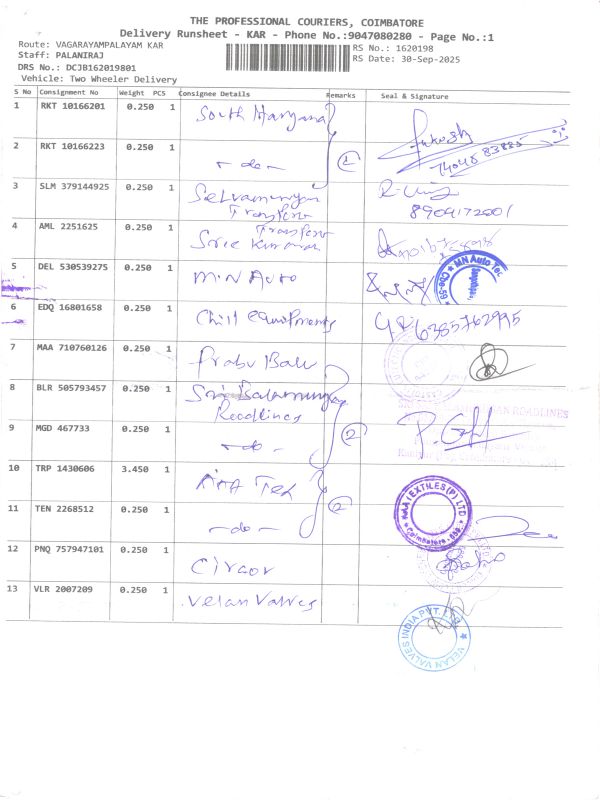 THE PROFESSIONAL COURIERS, COIMBATORE
Delivery Runsheet - KAR - Phone No.:9047080280 - Page No.:1
Route: VAGARAYAMPALAYAM KAR
RS No.: 1620198
Staff: PALANIRAJ
RS Date: 30-Sep-2025
DRS No.: DCJB162019801
Vehicle: Two Wheeler Delivery
S No Consignment No Weight PCS Consignee Details Remarks Seal & Signature
1 RKT 10166201 0.250 1 South
2 RKT 10166223 0.250 1 - do - 2
3 SLM 379144925 0.250 1 Selvamurugan
Transport
8909172001
4 AML 2251625 0.250 1 Transport
Sree Kumaran
5 DEL 530539275 0.250 1 M.N Auto
MN Auto Tec
Cbe-59
6 EDQ 16801658 0.250 1 Chill equipments 6385762995
7 MAA 710760126 0.250 1 Prabu Balu
8 BLR 505793457 0.250 1 Sri Balamurugan
Roadlines
ROADLINES
9 MGD 467733 0.250 1 - do - 2
10 TRP 1430606 3.450 1 Tex 2
TEXTILES (P) LTD
Coimbatore
11 TEN 2268512 0.250 1 - do -
12 PNQ 757947101 0.250 1 Circor
13 VLR 2007209 0.250 1 Velan Valves
VELAN VALVES INDIA PVT. LTD.